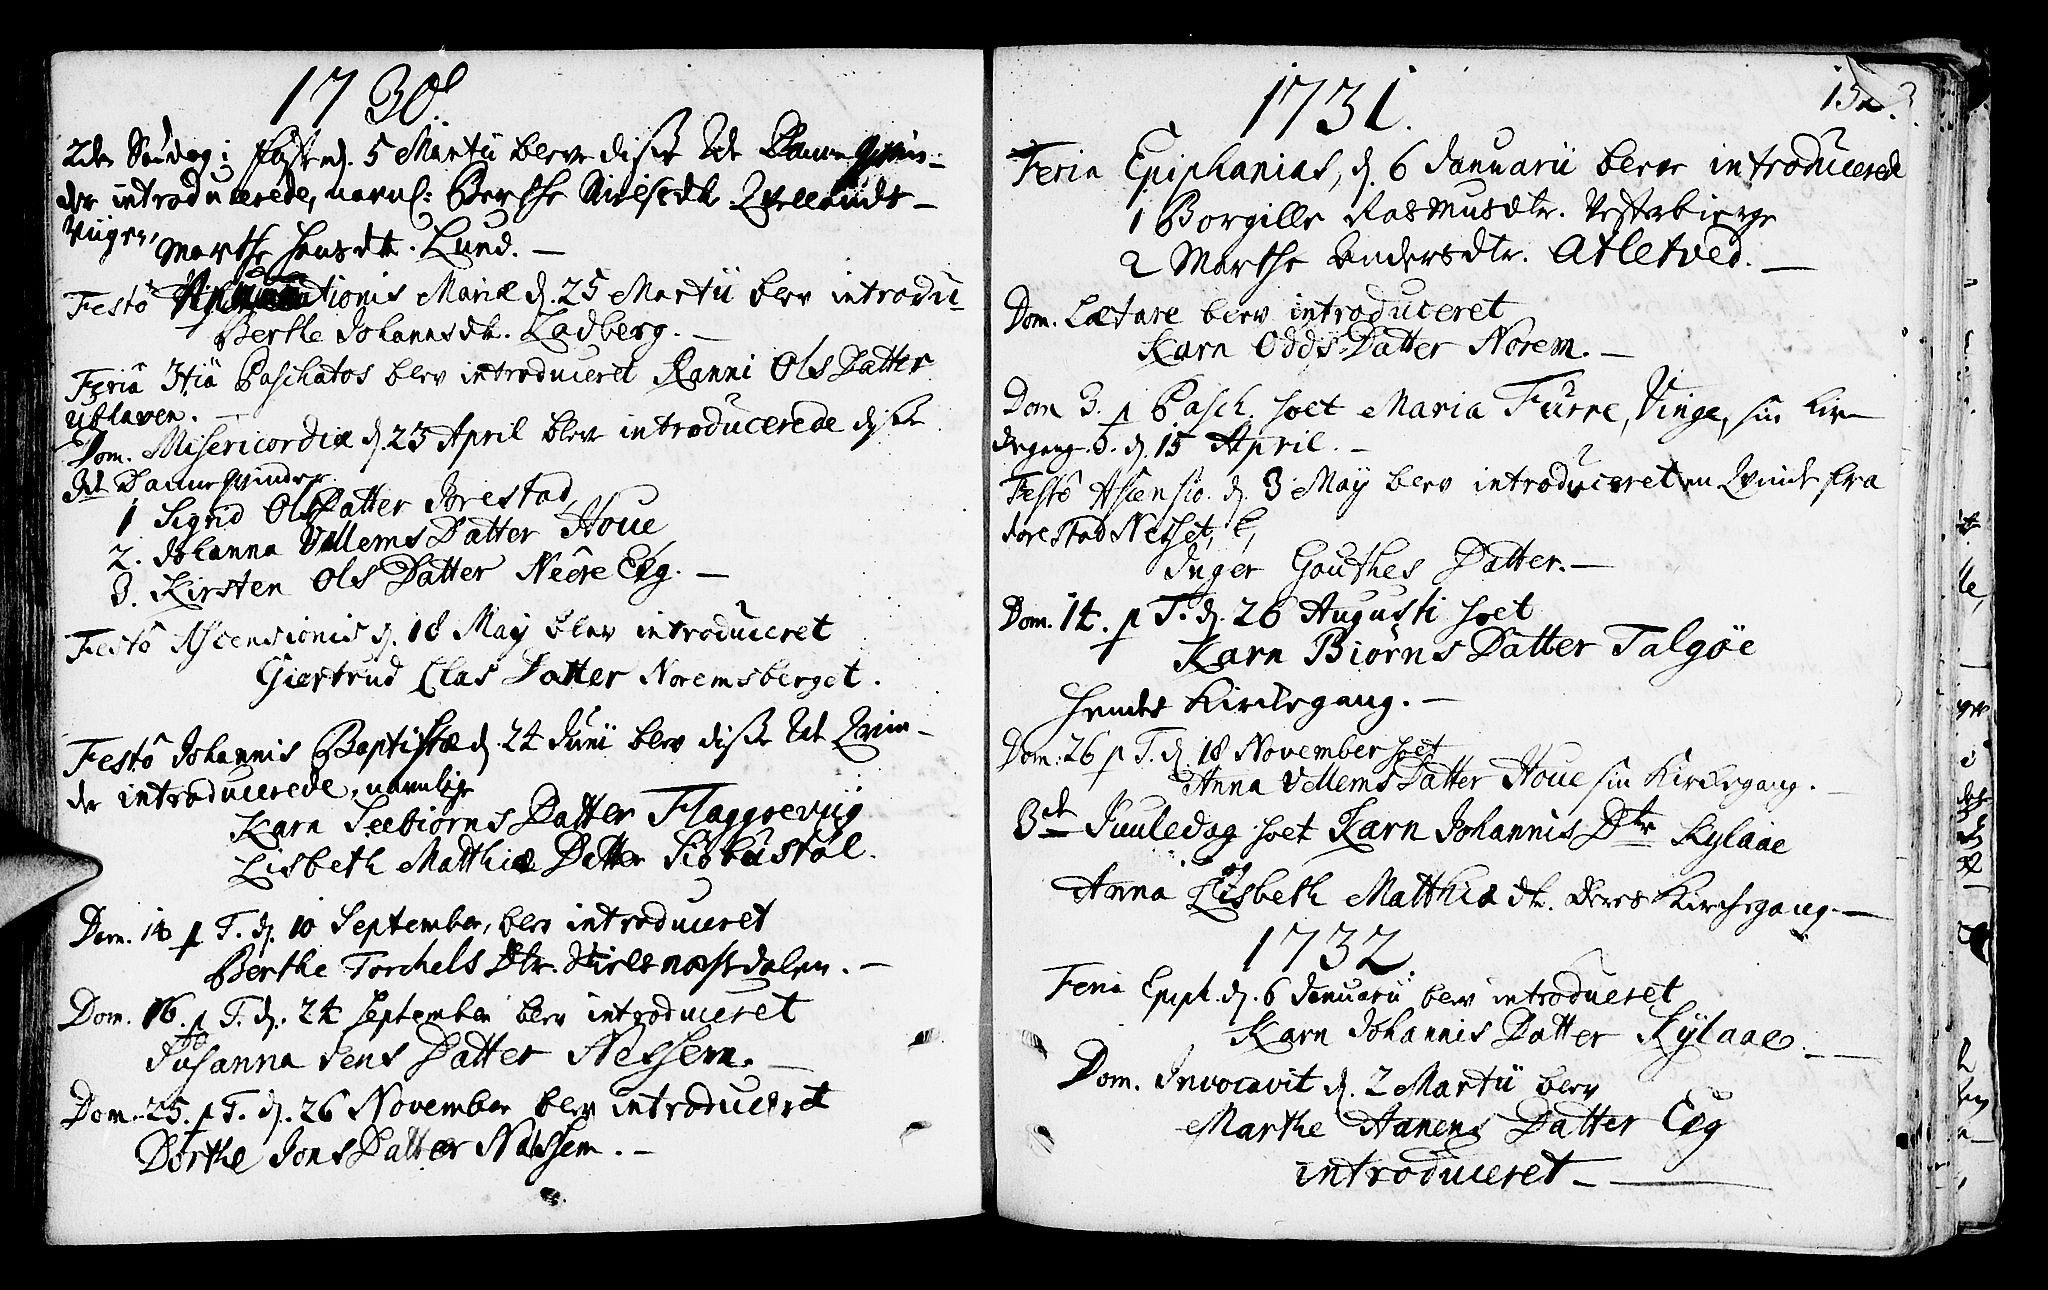 1730
2den Søndag i Fasten d. 5 Martii bleve disse 2de Danneqvin-
der introducerede, navnl: Berthe Nielsdtr. Qvellands-
Viigen, Marthe Hansdtr. Lund. —
Festo Mariæ d. 25 Martii blev introdu-
Berthe Johannsdtr. Ladberg. —
Feria 3tia Paschatos blev introduceret Ranni Ols Datter
—
Dom. Misericordiæ d. 23 April bleve introducerede disse
3de Danneqvinder
1 Sigrid Ols Datter Jørestad
2. Johanna Vellems Datter Houe
3. Kirsten Ols Datter Nedre Eeg. —
Festo Ascensionis d. 18 May blev introduceret
Giertrud Clas Datter Noremsberget.
Festo Johannis Baptistæ d. 24 Junii blev disse 2de Qvin-
der introducerede, navnlige
Karn Seebiørns Datter Flaggeviig
Lisbeth Matthiæ Datter
Dom. 14 p T. d. 10 September, blev introduceret
Berthe Torchels Dtr. —
Dom. 16. p T. d. 24 September blev introduceret
Susanna Jens Datter Nessem. —
Dom. 25. p T. d. 26 November blev introduceret
Dorthe Jons Datter Nessem. —
152.
1731.
Feria Epiphanias, d. 6 Januarii bleve introducerede
1 Borgille Rasmusdtr. Vesterbierge
2 Marthe Andersdtr. Atletved. —
Dom. Lætare blev introduceret
Karn Odds Datter Norem. —
Dom 3. p Pasch. hoet Maria Furre, Vinge, sin Kir-
degang. d. 15 April. —
Festo Ascensio. d. 3 May blev introduceret en Qvinde fra
Jorestad Nesset,
Inger Gouthes Datter. —
Dom. 14. p T. d. 26 Augusti hoet
Karn Biørns Datter Talgøe
hendes Kirchegang. —
Dom. 26 p T. d. 18 November hoet
Anna Vellems Datter Houe sin Kirchegang. —
3de Juuledag hoet Karn Johannis Dtr Kylaae
Anna Lisbeth Matthiæ dtr. deres Kirchegang. —
1732
Feria Epiph. d. 6 Januarii blev introdueret
Karn Johannis Datter Kÿlaae. —
Dom. Invocavit d. 2 Martii blev
Marthe Aanens Datter Eeg
introduceret —